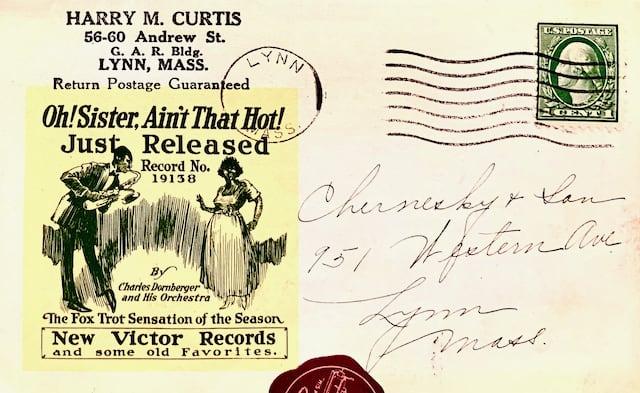 HARRY M. CURTIS
56-60 Andrew St.
G. A. R. Bldg.
LYNN, MASS.
Return Postage Guaranteed
LYNN
MASS.
U.S. POSTAGE
1 CENT 1
Oh! Sister, Ain't That Hot!
Just Released
Record No.
19138
By
Charles Dornberger
and His Orchestra
The Fox Trot Sensation of the Season
New Victor Records
and some old Favorites.
Chernesky & Son
951 Western Ave
Lynn
Mass.